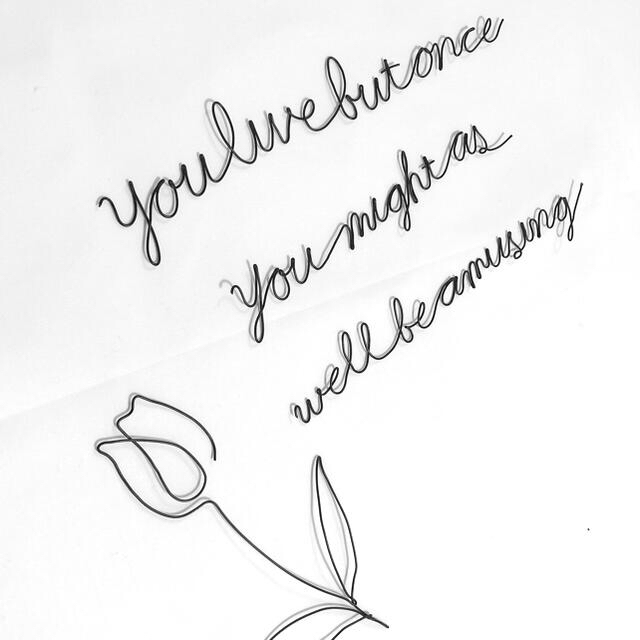 you live but once
you might as
well be amusing